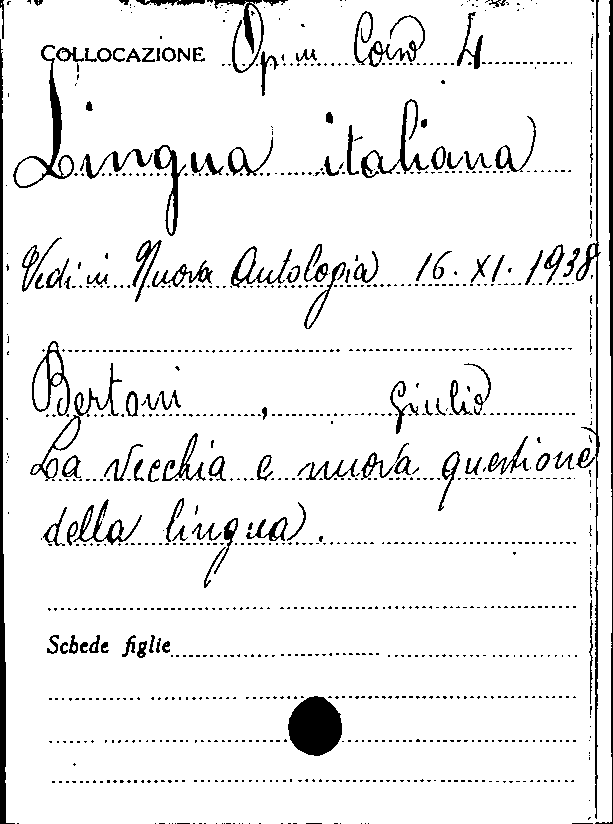 COLLOCAZIONE Op. in Corso 4
Lingua italiana
Vedi in Nuova Antologia 16. XI. 1938
Bertoni , Giulio
La vecchia e nuova questione
della lingua.
Schede figlie